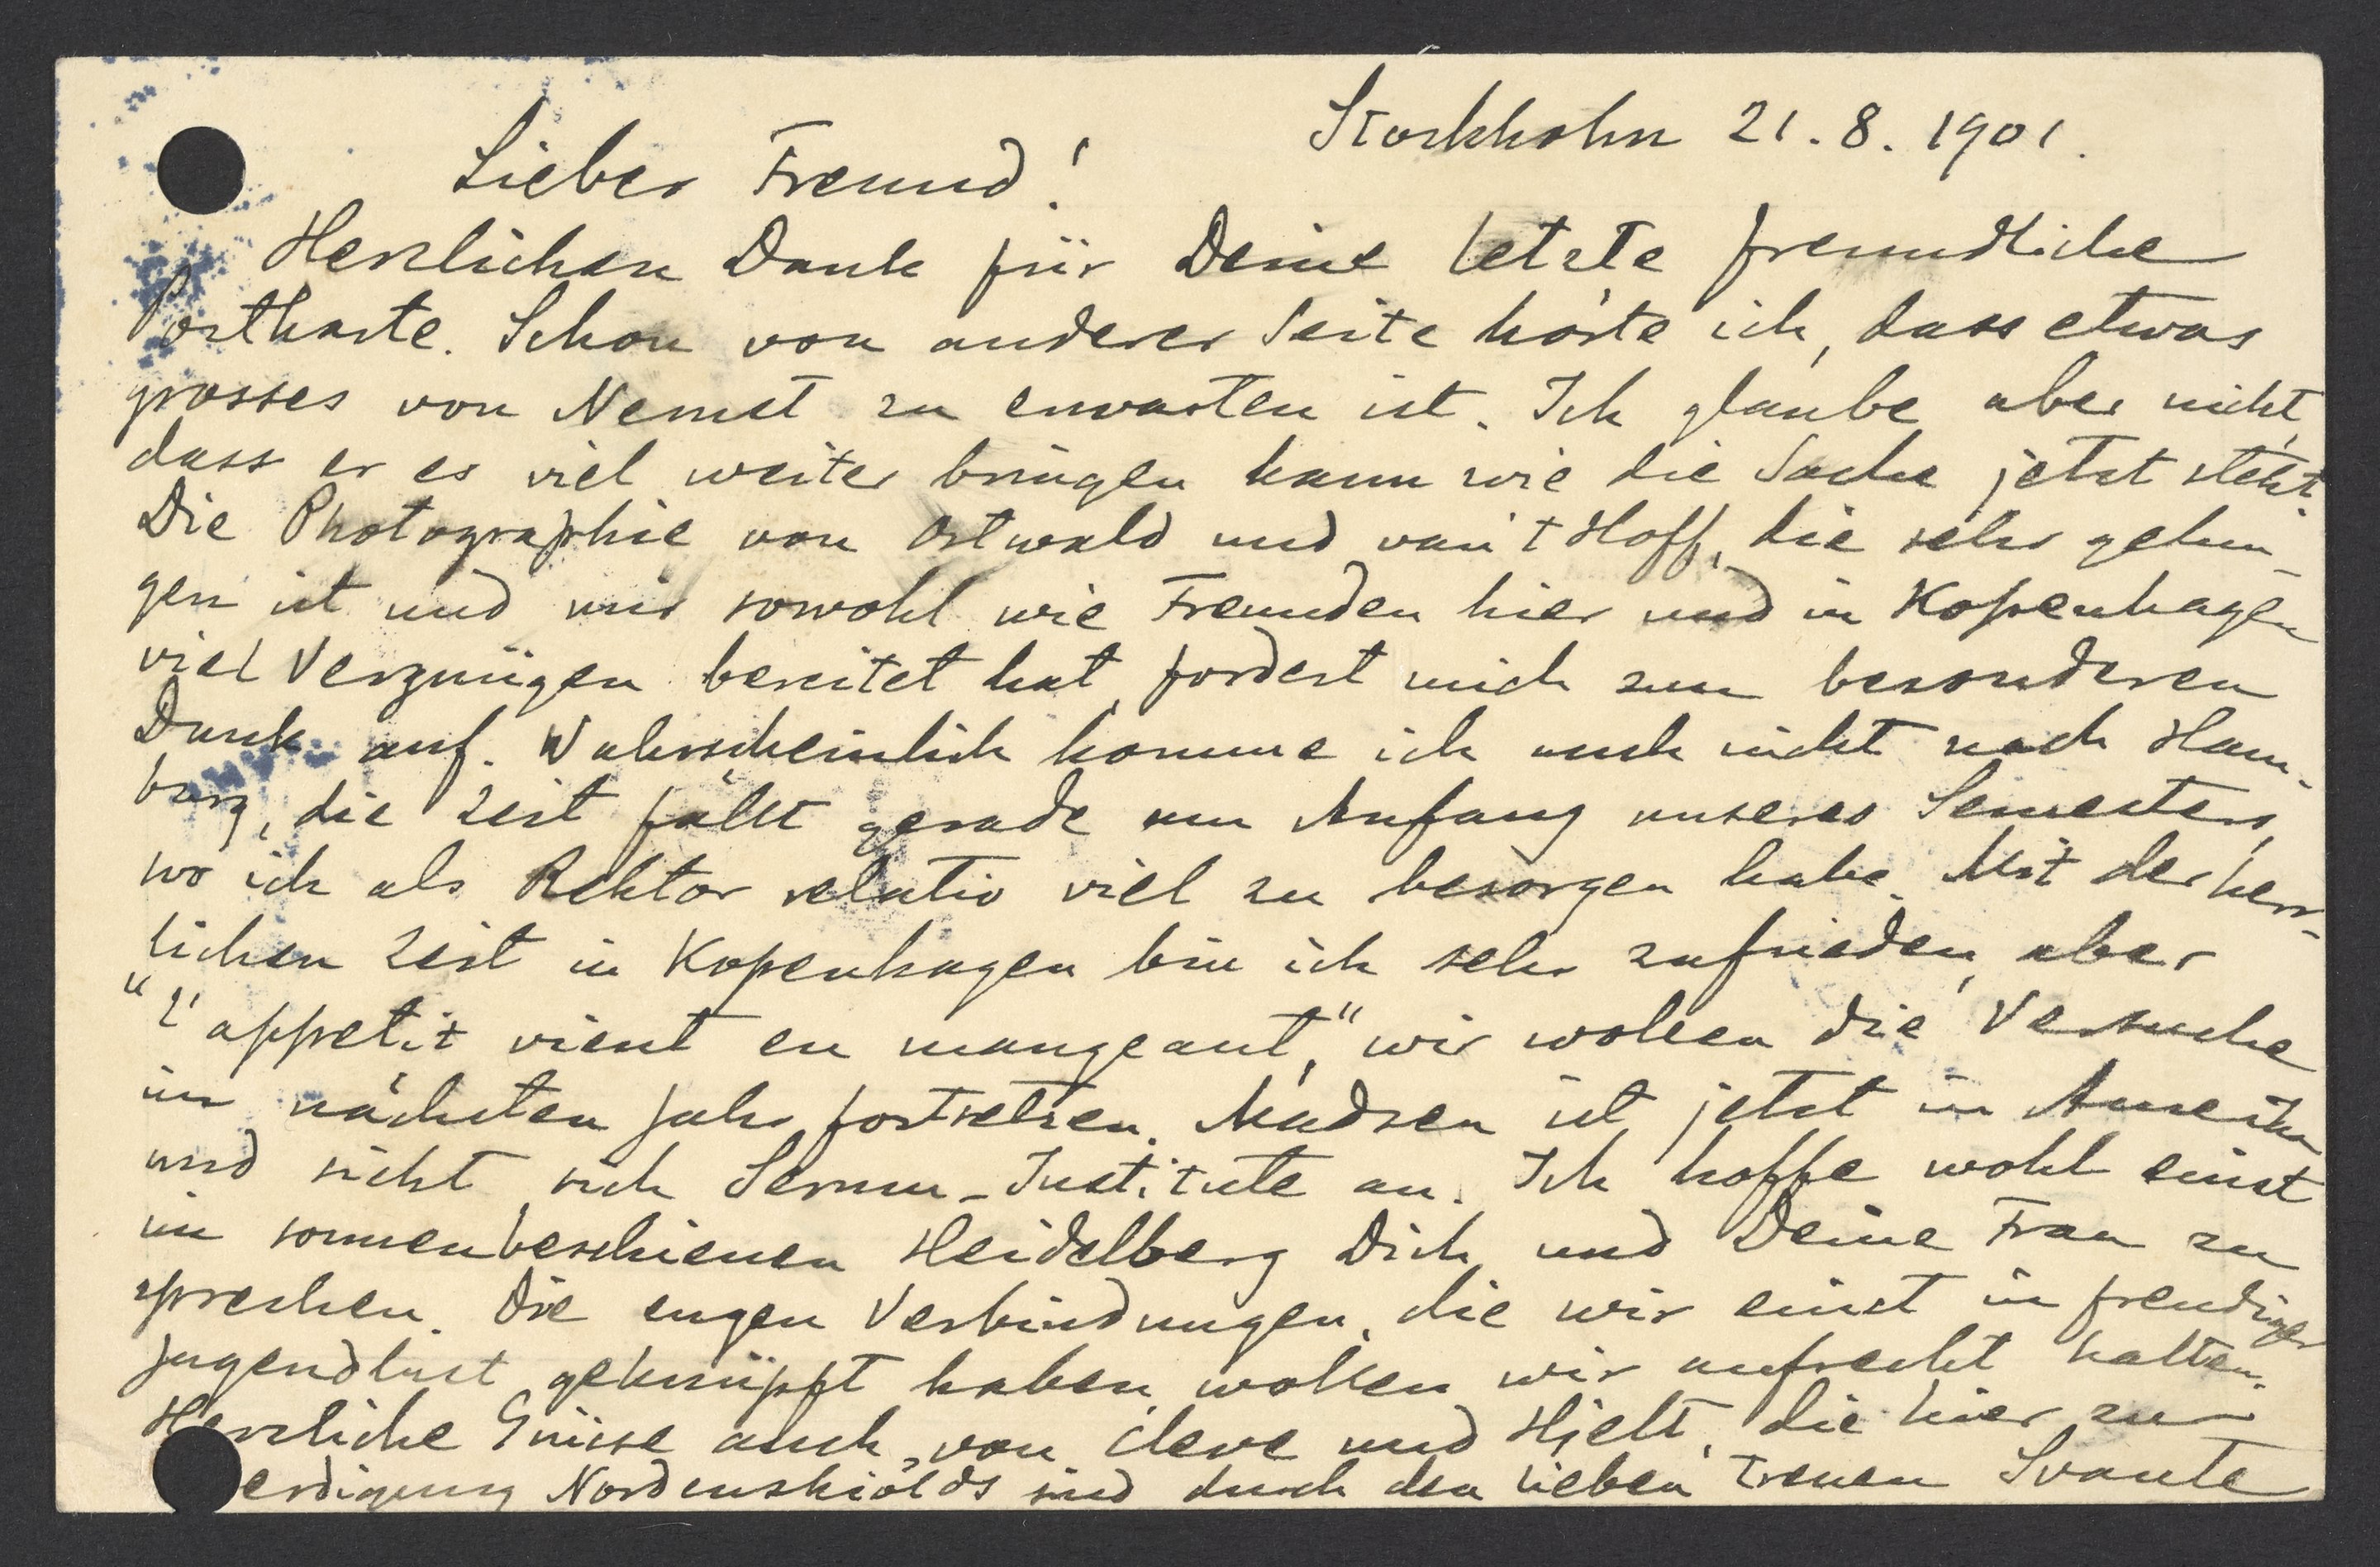 Stockholm 21. 8. 1901.
Lieber Freund!
Herzlichen Dank für Deine letzte freundliche
Postkarte. Schon von anderer Seite hörte ich, dass etwas
grosses von Nernst zu erwarten ist. Ich glaube aber nicht,
dass er es viel weiter bringen kann wie die Sache jetzt steht.
Die Photographie von Ostwald und van't Hoff, die sehr gelun-
gen ist und mir sowohl wie Freunden hier und in Kopenhagen
viel Vergnügen bereitet hat, fordert mich zum besonderen
Dank auf. Wahrscheinlich komme ich auch nicht nach Ham-
burg, die Zeit fällt gerade am Anfang unseres Semesters,
wo ich als Rektor relativ viel zu besorgen habe. Mit der herr-
lichen Zeit in Kopenhagen bin ich sehr zufrieden, aber
"l'appetit vient en mangeant", wir wollen die Versuche
im nächsten Jahr fortsetzen. Madsen ist jetzt in Amerika
und sieht sich Serum-Institute an. Ich hoffe wohl einst
im sonnenbeschienen Heidelberg Dich und Deine Frau zu
sprechen. Die engen Verbindungen, die wir einst in freudiger
Jugendlust geknüpft haben, wollen wir aufrecht halten.
Herzliche Grüsse auch von Cleve und Hjelt, die hier zur
erdigung Nordenskiölds sind durch den lieben treuen Svante